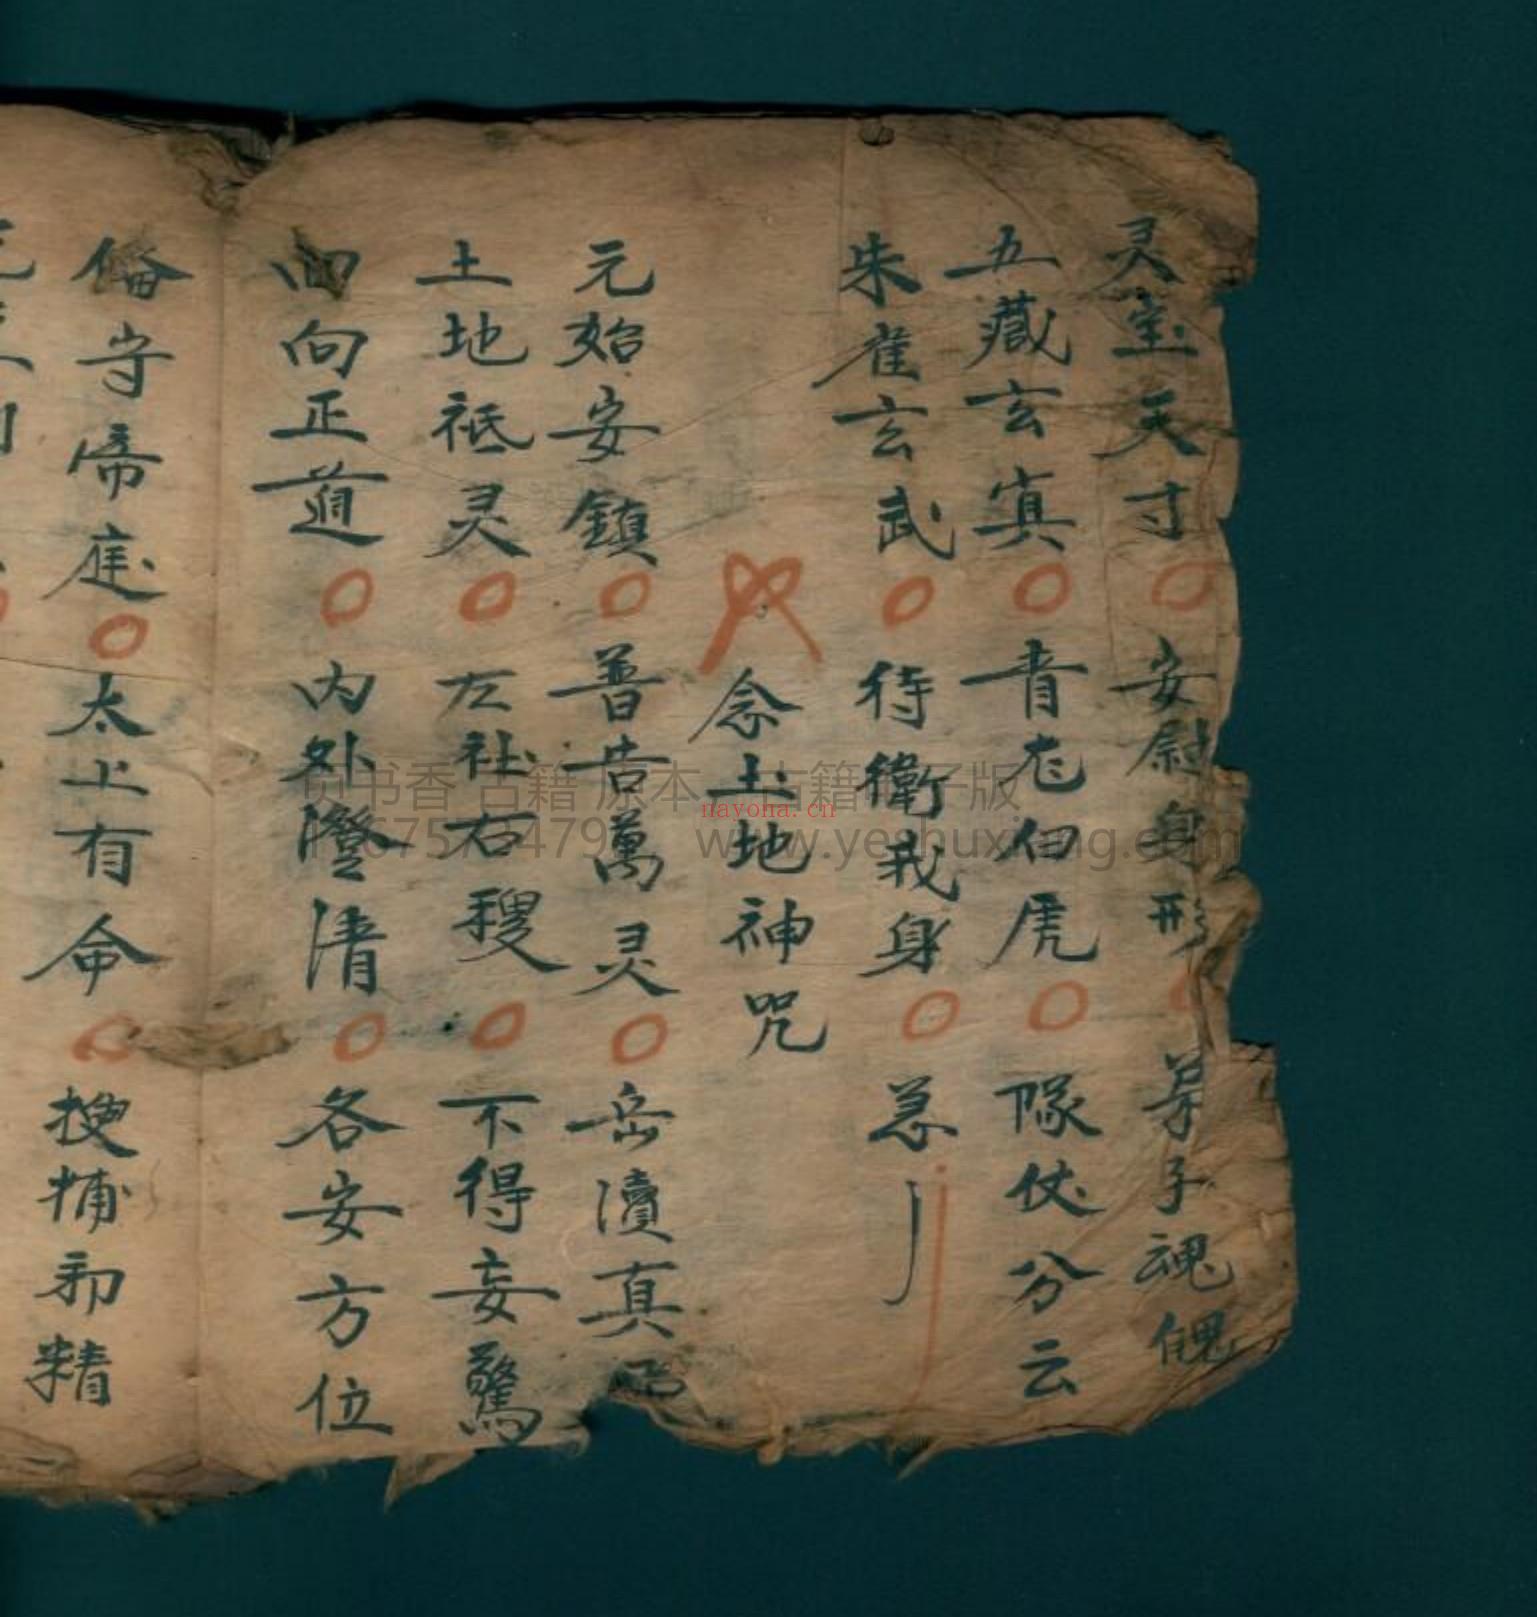 灵宝天寸○安尉身形○弟子魂傀
五藏玄真○青老白虎○隊仗分云
朱雀玄武○待衛我身○急
念土地神咒
元始安鎮○普告萬灵○岳瀆真
土地祗灵○左社右稷○不得妄驚
回向正道○内外澄清○各安方位
俻守帝庭○太上有命○搜捕邪精
贝书香 古籍 原本 古籍 电子版
nayona.cn
www.yeshuxiang.com